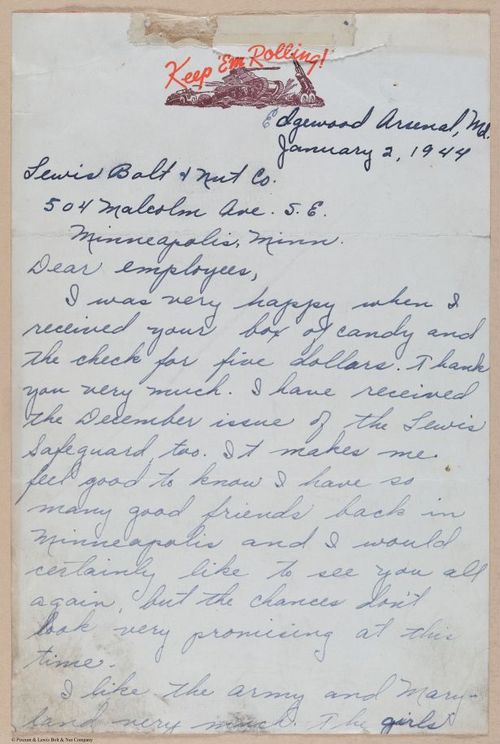 Keep 'Em Rolling!
Edgewood Arsenal, Md.
January 2, 1944
Lewis Bolt & Nut Co.
504 Malcolm Ave. S.E.
Minneapolis, Minn.
Dear employees,
I was very happy when I
received your box of candy and
the check for five dollars. Thank
you very much. I have received
the December issue of the Lewis
Safeguard, too. It makes me
feel good to know I have so
many good friends back in
Minneapolis and I would
certainly like to see you all
again, but the chances don't
look very promising at this
time.
I like the army and Mary-
land very much. The girls
© Possum & Lewis Bolt & Nut Company